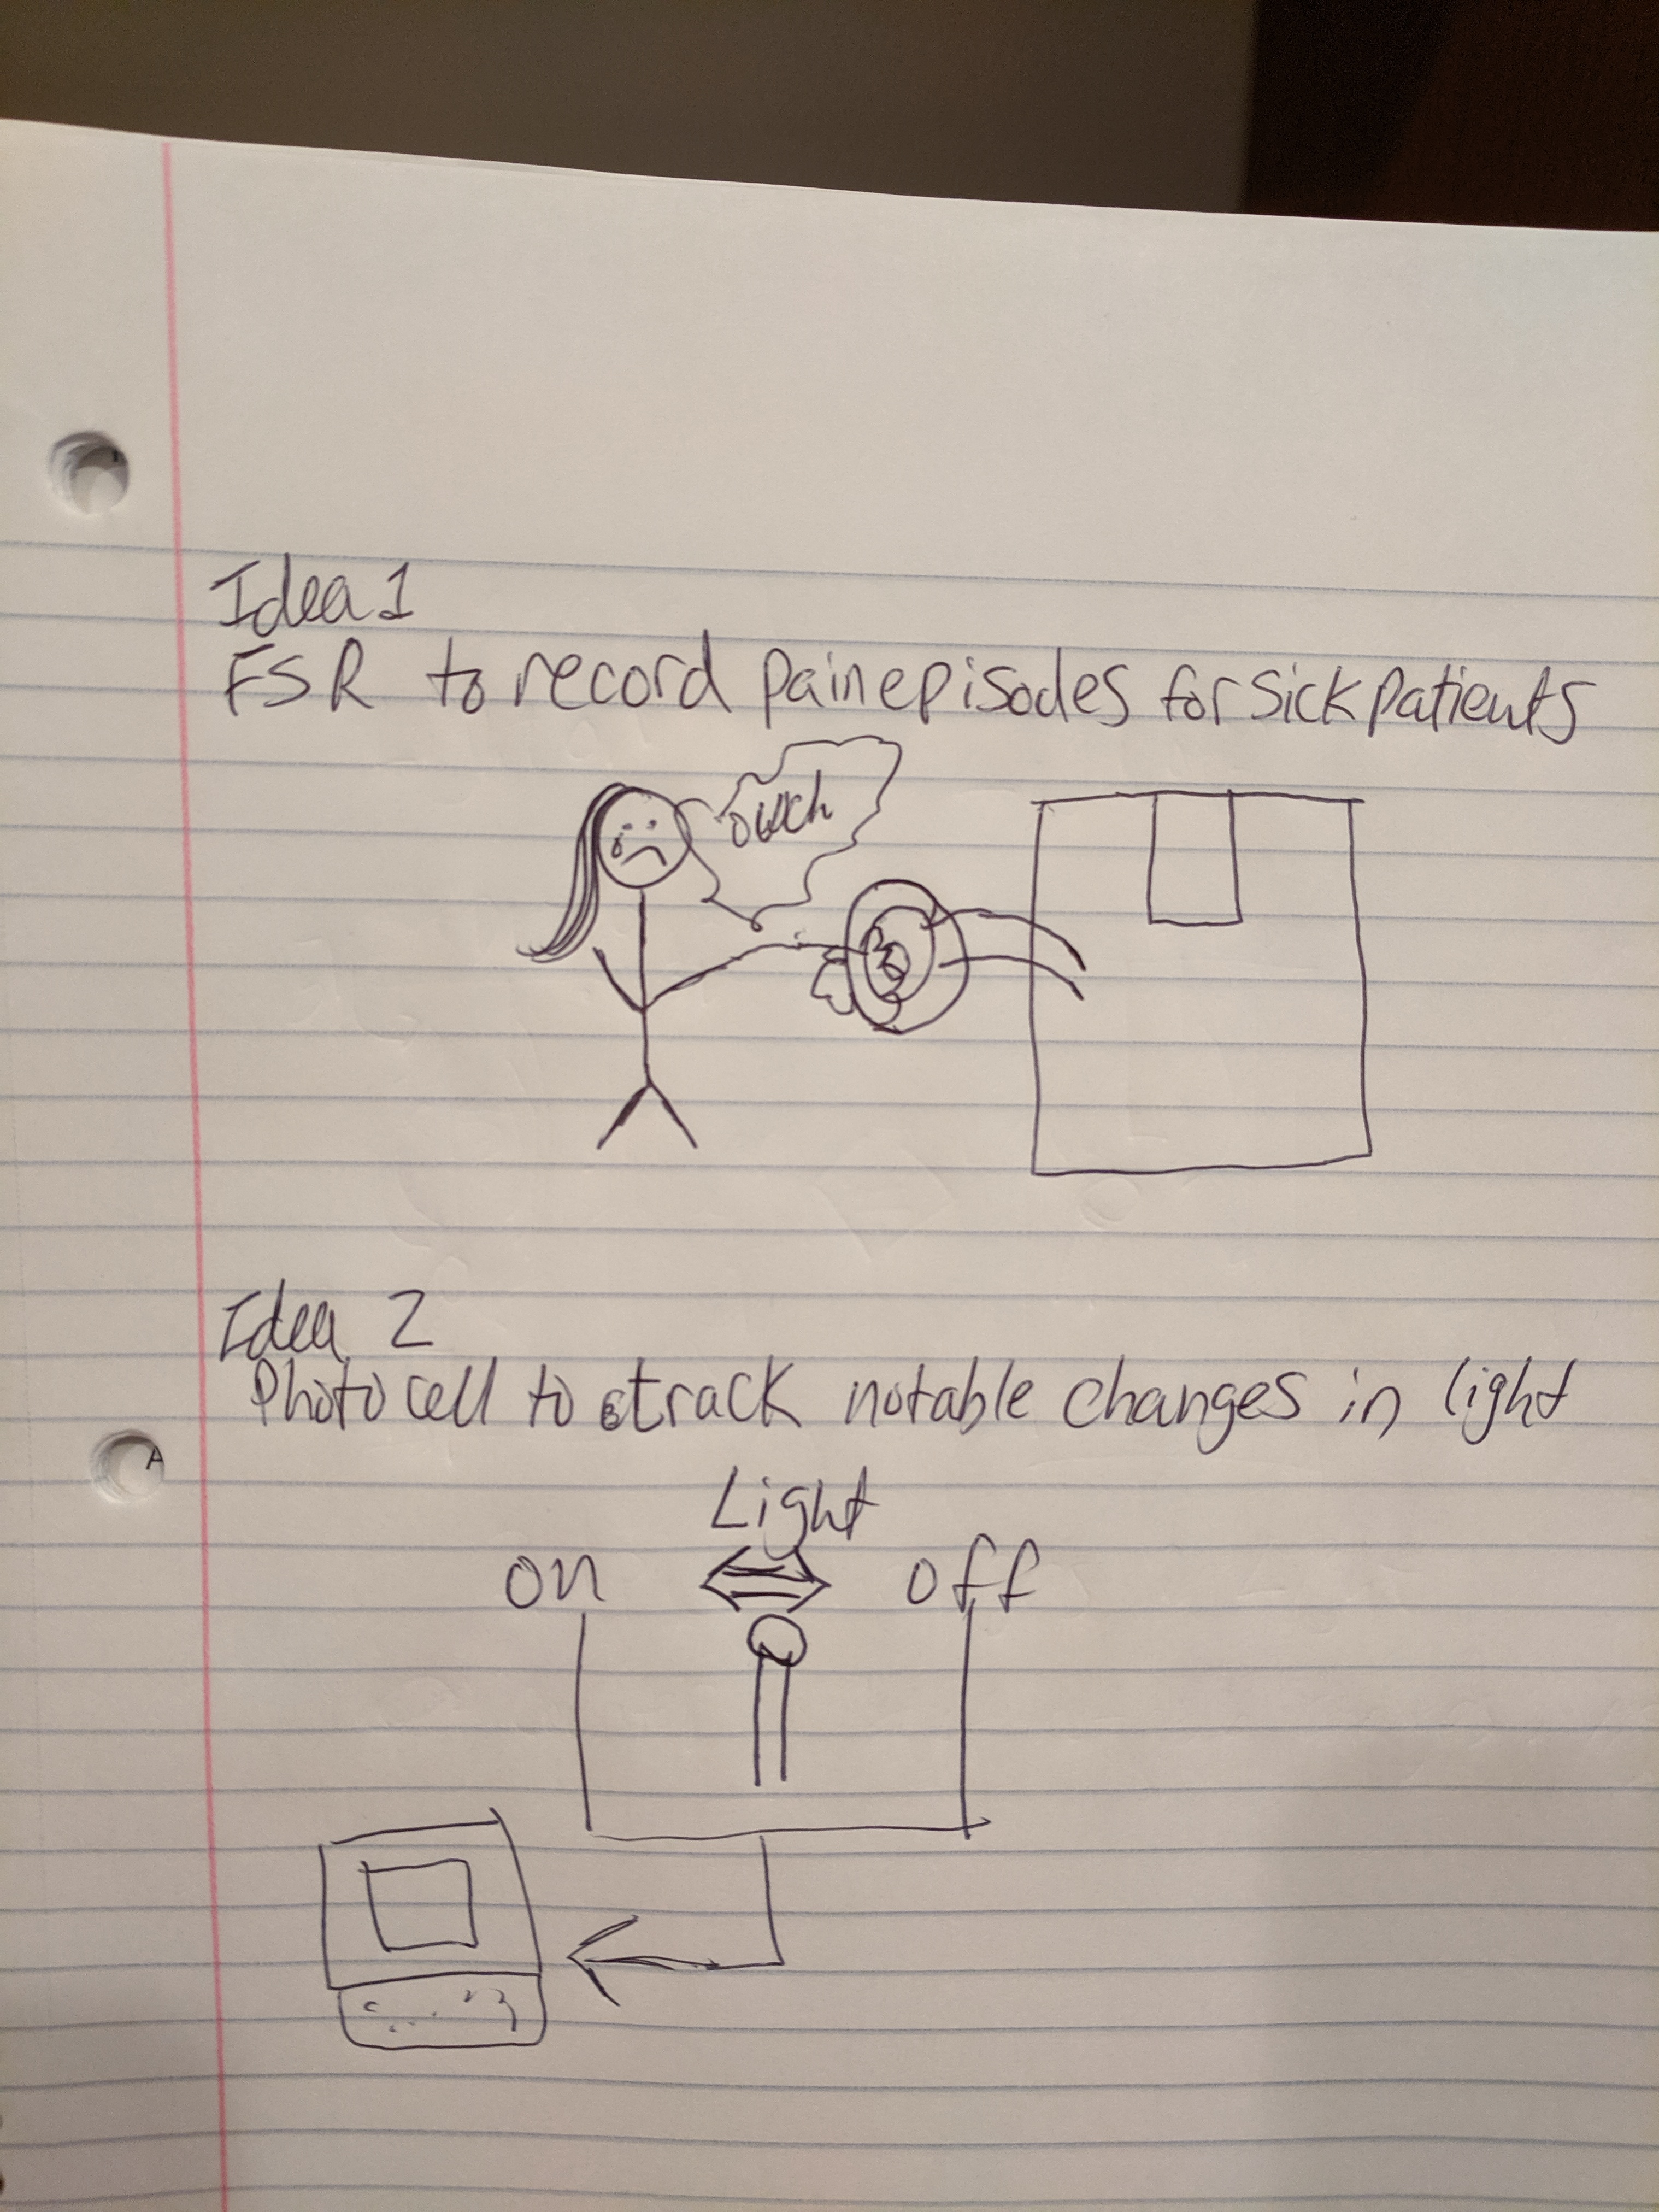 Idea 1
FSR to record pain episodes for sick patients
ouch
Idea 2
Photocell to track notable changes in light
Light
on off
A